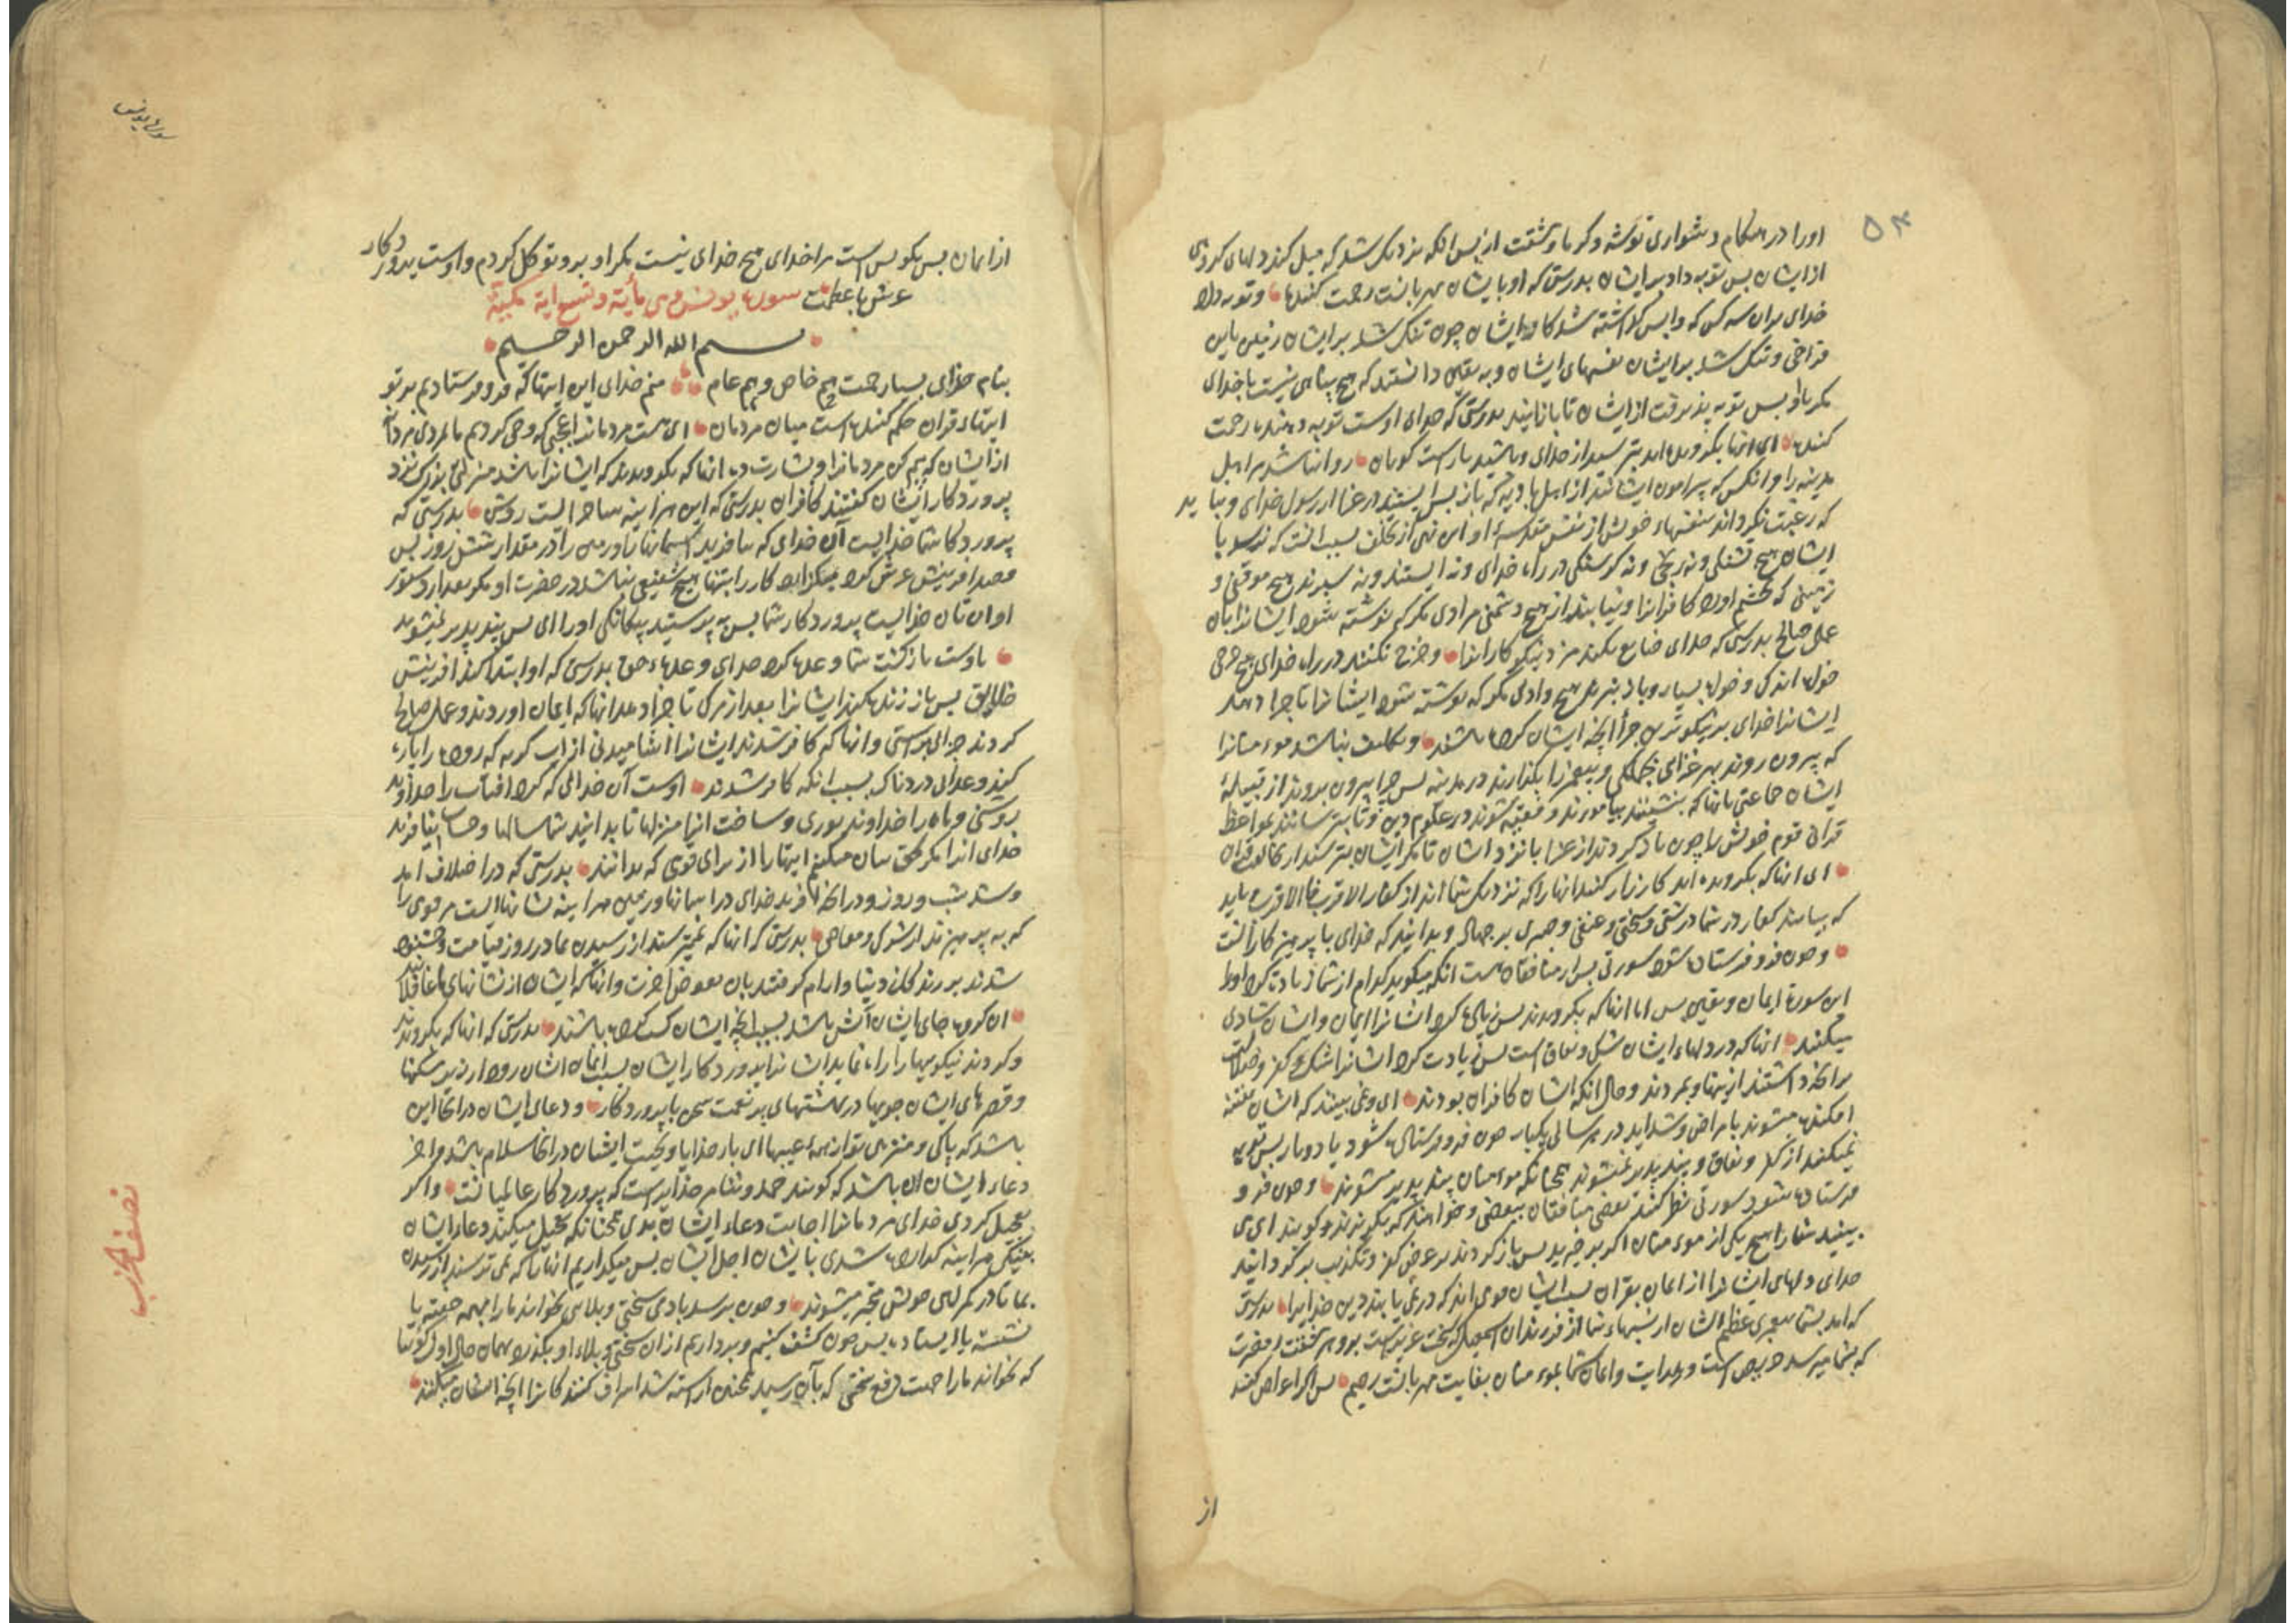 ۵۴
اورا در هنکام دشواری توشه و کرما و مشقت از پس انکه نزدیک شد که میل کند دلهای کروهی
از ایشان پس توبه داد بر ایشان بدرستی که او بایشان مهربانست رحمت کننده و توبه داد
خدای بران سه کس که واپس کذاشته شد کار ایشان چون تنک شد بر ایشان زمین باین
فراخی و تنک شد بر ایشان نفسهای ایشان و به یقین دانستند که هیچ پناهی نیست با خدای
مکر باو پس توبه پذیرفت از ایشان تا باز ایند بدرستی که خدای اوست توبه دهنده با رحمت
کننده ای انها بکرویده اید بترسید از خدای و باشید با راست کویان روا نباشد مر اهل
مدینه را و انکس که پیرامون ایشانند از اهل بادیه که باز پس ایستند در غزا از رسول خدای و نباید
که رغبت نکرداند بنفسهاء خویش از نفس مقدسهٔ او این نهی از تخلف بسبب انست که نرسد با
ایشان هیچ تشنکی و نه رنجی و نه کرسنکی در راه خدای و نه ایستند و نه سپرند هیچ موقفی و
زمینی که بخشم اورد کافرانرا و نیابند از هیچ دشمنی مرادی مکر که نوشته شود ایشانرا بان
عمل صالح بدرستی که خدای ضایع نکند مزد نیکو کارانرا و خرج نکنند در راه خدای هیچ خرجی
خواه اندکی و خواه بسیار و باز نبرند هیچ وادی مکر که نوشته شود ایشانرا تا جزا دهد
ایشانرا خدای بر نیکوترین جزا انچه ایشان کرده باشند و تکلیف نباشد مومنانرا
که بیرون روند بهر غزای بجملکی و پیغمبر را بکذارند در مدینه پس چرا بیرون نروند از قبیلهٔ
ایشان جماعتی تا انها که بنشینند بیاموزند و فقیه شوند در علوم دین و تا بترسانند بمواعظ
قران قوم خویش را چون باز کردند از غزا با نزد ایشان تا مکر ایشان بترسند از مخالفت قران
ای انها که بکرویده اید کارزار کنید انها را که نزدیک شما اند از کفار الاقرب فالاقرب باید
که بیابند کفار در شما درشتی و سختی و عنفی و صبری بر جهاد و بدانید که خدای با پرهیزکارانست
و چون فرو فرستاده شود سورتی پس از منافقان هست انکه میکوید کدام از شما زیادت کرد اورا
این سورة ایمان و یقین پس اما انها که بکرویدند پس زیادة کرد ایشانرا ایمان و ایشان شادی
میکنند انها که در دلهاء ایشان شک و نفاق است پس زیادت کرد ایشانرا شک و کفر و ضلالت
بر انچه داشتند از پنها و بمردند و حال انکه ایشان کافران بودند ای و نمی بینند که ایشان بفتنه
افکنده میشوند بامراض و شداید در هر سالی یکبار چون فرو فرستاده شود یا دوبار پس توبه
نمیکنند از کفر و نفاق و پند پذیر نمیشوند همچنانکه مومنان پند پذیر میشوند و چون فرو
فرستاده شود سورتی نظر کنند بعضی منافقان ببعضی و خواهند که بکریزند و کویند ای می
بینید شما را هیچ یکی از مومنان اکر برخیزید پس باز کردند بر عرض کفر و تکذیب بر کردانید
خدای دلهای ایشانرا از ایمان بقران بسبب ایشان قومی اند که در نمی یابند دین خدایرا بدرستی
که امد بشما پیغمبری عظیم الشان از نسبهاء شما از فرزندان اسمعیل که سخت عزیز است برو مشقت و مضرت
که بشما میرسد حریص است و بهدایت و ایمان شما بمومنان بغایت مهربانست رحیم پس اکر اعراض کنند
از
سورة یونس
از ایمان پس بکو بس است مرا خدای هیچ خدای نیست مکر او برو توکل کردم و اوست پروردکار
عرش با عظمت سورة یونس و هی مأیة و تسع ایة مکیة
بسم الله الرحمن الرحیم
بنام خدای بسیار رحمت بهم خاص و بهم عام منم خدای این ایتها که فرو فرستادیم بر تو
ایتهاء قران حکم کننده است میان مردمان ای هست مردمانرا عجبی که وحی کردیم ما بمردی مردانه
از ایشان که بیم کن مردمانرا و بشارت ده انها که بکرویدند که ایشانرا باشد منزلتی بزرک نزد
پروردکار ایشان کفتند کافران بدرستی که این هر اینه ساحر است روشن بدرستی که
پروردکار شما خدایست آن خدای که بیافرید اسمانها و زمین را در مقدار شش روز پس
قصد افرینش عرش کرد میکذارد کار را بتنها هیچ شفیعی نباشد در حضرت او مکر بعد از دستور
او ان تان خدایست پروردکار شما پس به پرستید بیکانکی اورا ای پس پند پذیر نمیشوید
باوست بازکشت شما وعده کرد خدای وعدهاء حق بدرستی که او ابتدا کند افرینش
خلایق پس باز زنده کند ایشانرا بعد از مرک تا جزا دهد انها که ایمان اوردند و عمل صالح
کردند جزای براستی و انها که کافر شدند ایشانرا اشامیدنی از اب کرم که رودها را پاره
کند و عذابی دردناک بسبب انکه کافر شدند اوست آن خدائی که کرد افتاب را خداوند
روشنی و ماه را خداوند نوری و ساخت انرا منزلها تا بدانید شما سالها و حساب نیافرید
خدای انرا مکر بحق بیان میکنیم ایتها را از برای قومی که بدانند بدرستی که در اختلاف امد
و شد شب و روز و در انچه افرید خدای در اسمانها و زمین هر اینه نشانهاست مر قومی را
که به پرهیزند از شرک و معاصی بدرستی که انها که نمیترسند از رسیدن ما در روز قیامت و خشنود
شدند بزندکانی دنیا و ارام کرفتند بان بعوض اخرت و انها که ایشان از نشانهای ما غافلانند
ان کروه جای ایشان آتش باشد بسبب انچه ایشان کسب کرده باشند بدرستی که انها که بکرویدند
و کردند نیکوییها را راه نماید ایشانرا پروردکار ایشان بسبب ایمان ایشان روان از زیر مسکنها
و قصرهای ایشان جویها در بهشتهای پر نعمت سخن با پروردکار و دعای ایشان در انجا این
باشد که پاکی و منزهی تو از همهٔ عیبها ای بار خدایا و تحیت ایشان در انجا سلام باشد و اخر
دعاء ایشان ان باشد که کویند حمد و ثنا مر خدایراست که پروردکار عالمیانست و اکر
تعجیل کردی خدای مردمانرا اجابت دعاء ایشان ببدی همچنانکه تعجیل میکند دعاء ایشان
بنیکی هر اینه کذارده شدی بایشان اجل ایشان پس میکذاریم انها را که نمی ترسند از رسیدن
بما تا در کمرهی خویش متحیر میشوند و چون برسد بادمی سختی و بلائی بخواند ما را بهمه خفته یا
نشسته یا ایستاده پس چون کشف کنیم و برداریم از ان سختی و بلاء او بکذرد بهمان حال اول کوئیا
که نخوانده ما را جهت دفع سختی که بآن رسید همچنین اراسته شد اسراف کنندکانرا انچه ایشان میکنند
نصف الحزب